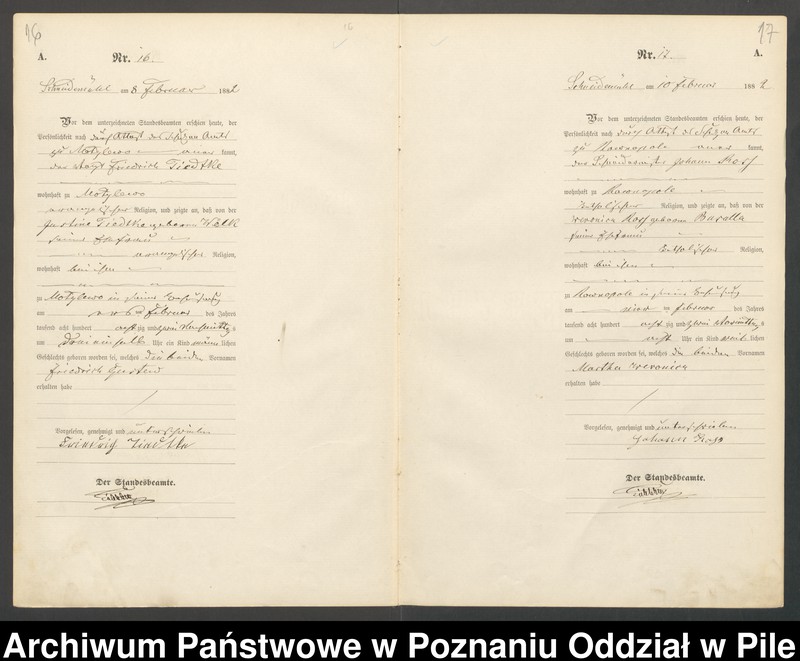 16
A.
Nr. 16.
Schneidemühl am 8. Februar 1882
Vor dem unterzeichneten Standesbeamten erschien heute, der
Persönlichkeit nach durch Attest des Schulzen Amts
zu Motylewo kannt,
der Voigt Friedrich Tiedtke
wohnhaft zu Motylewo
evangelischer Religion, und zeigte an, daß von der
Justine Tiedtke geborene Welk
seiner Ehefrau
evangelischer Religion,
wohnhaft bei ihm
zu Motylewo in seiner Behausung
am Februar des Jahres
tausend acht hundert achtzig und zwei Nachmittags
um Uhr ein Kind männlichen
Geschlechts geboren worden sei, welches die beiden Vornamen
Friedrich Gustav
erhalten habe
Vorgelesen, genehmigt und unterschrieben
Friedrich Tiedtke
Der Standesbeamte.
16
17
Nr. 17.
A.
Schneidemühl am 10 Februar 1882
Vor dem unterzeichneten Standesbeamten erschien heute, der
Persönlichkeit nach durch Attest des Schulzen Amts
zu kannt,
der Schneidermeister Johann
wohnhaft zu
katholischer Religion, und zeigte an, daß von der
Veronica geborene
seiner Ehefrau
katholischer Religion,
wohnhaft bei ihm
zu in seiner Behausung
am Februar des Jahres
tausend acht hundert achtzig und zwei Vormittags
um acht Uhr ein Kind weiblichen
Geschlechts geboren worden sei, welches die beiden Vornamen
Martha Veronica
erhalten habe
Vorgelesen, genehmigt und unterschrieben
Johann
Der Standesbeamte.
Archiwum Państwowe w Poznaniu Oddział w Pile